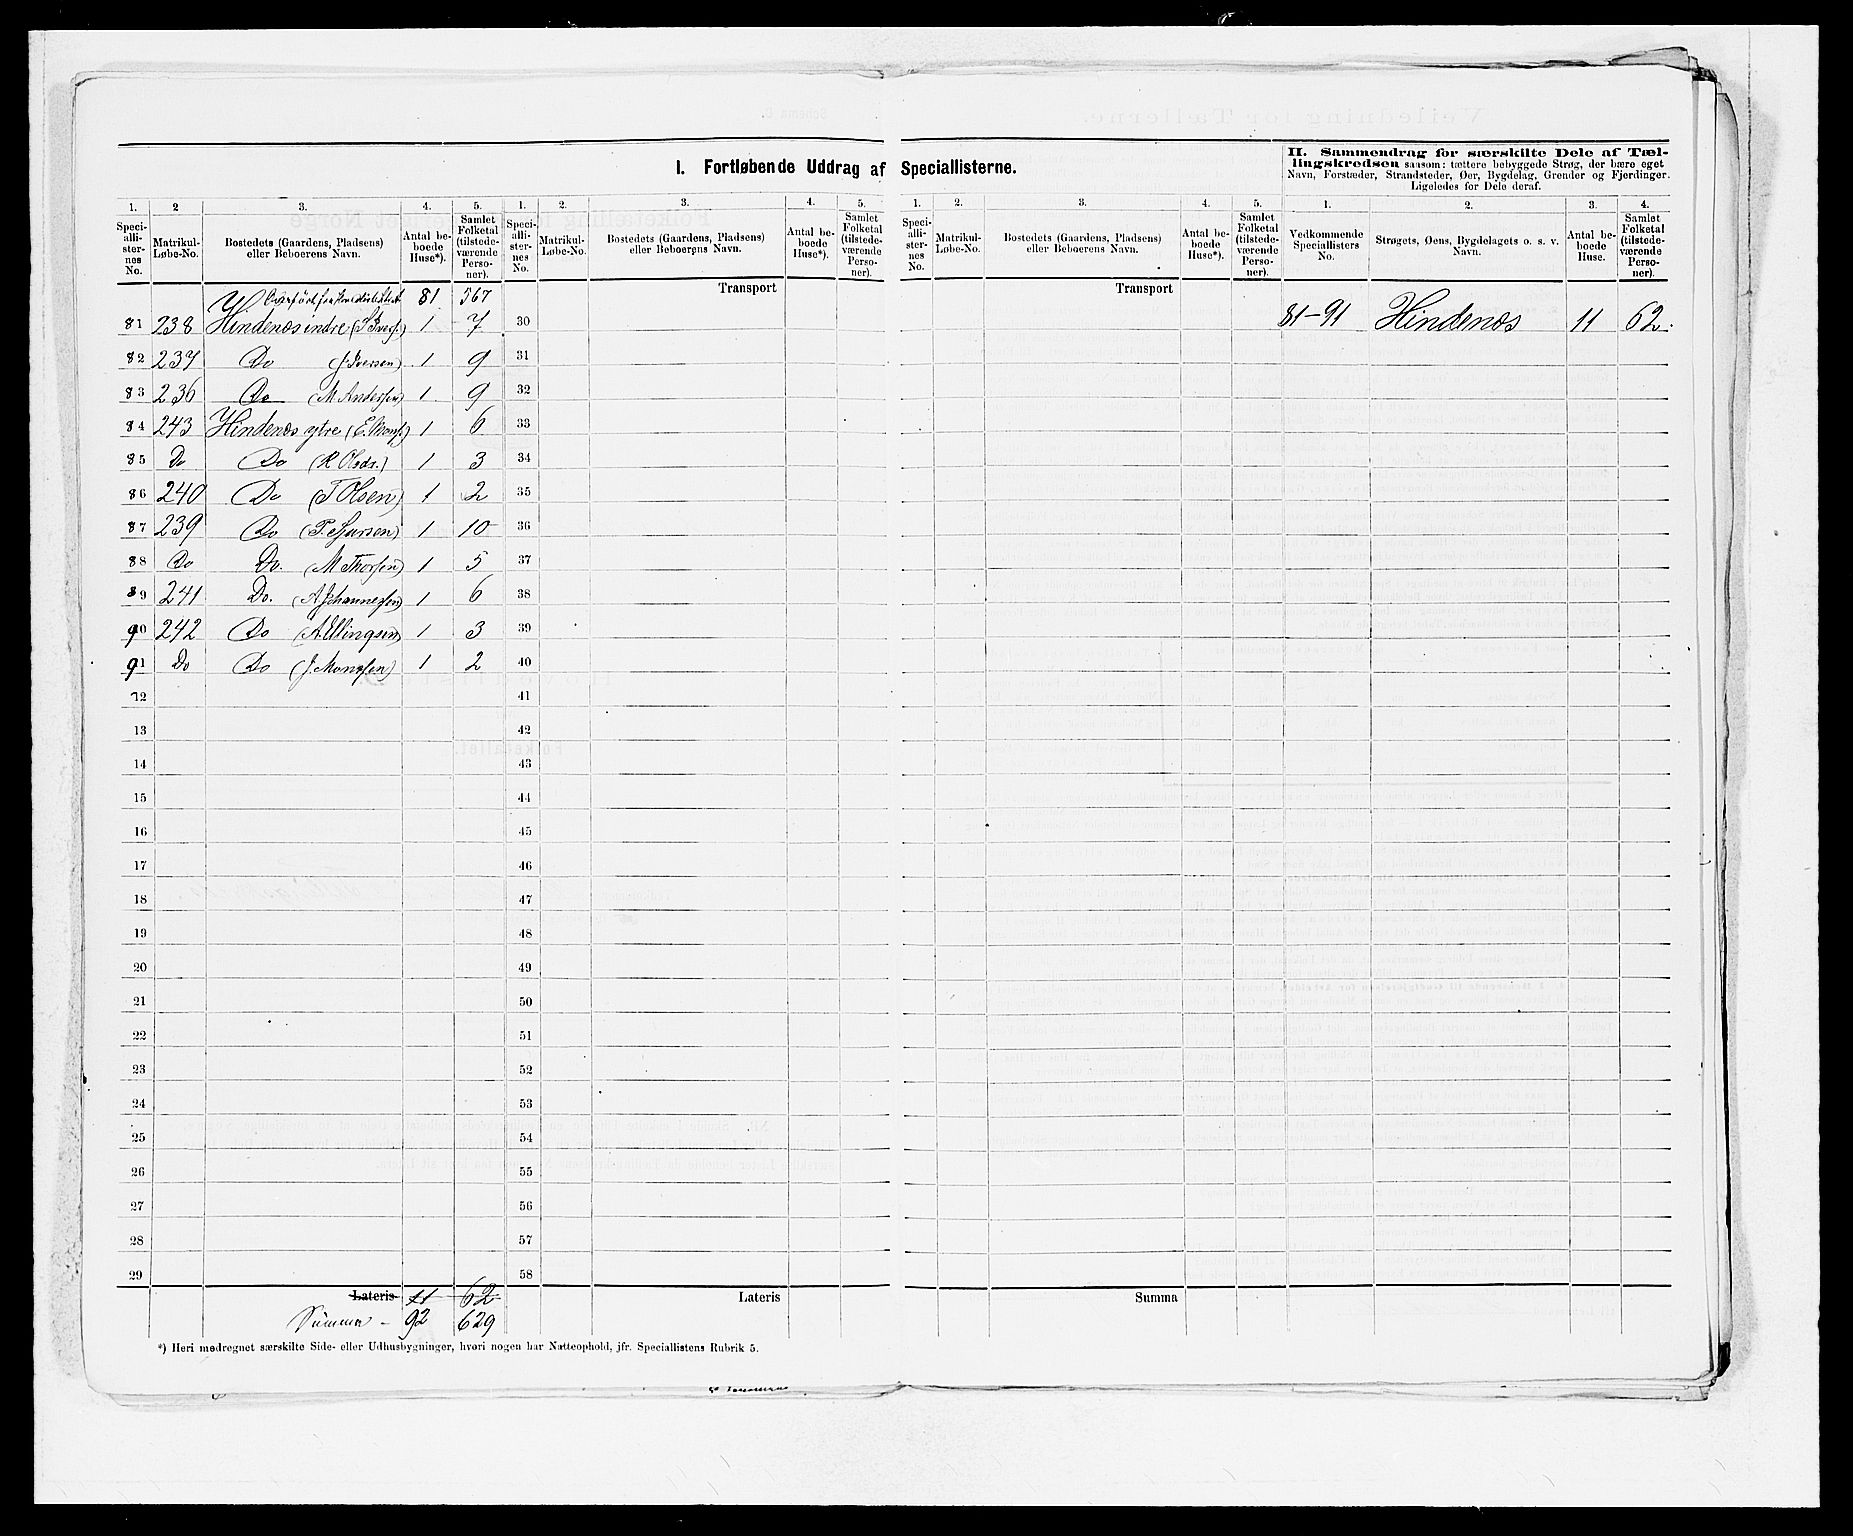 I. Fortløbende Uddrag af Speciallisterne.
II. Sammendrag for særskilte Dele af Tæl-
lingskredsen saasom: tættere bebyggede Strøg, der bære eget
Navn, Forstæder, Strandsteder, Øer, Bygdelag, Grender og Fjerdinger.
Ligeledes for Dele deraf.
1. 2 3. 4. 5. 1. 2. 3. 4. 5. 1. 2. 3. 4. 5. 1. 2. 3. 4.
Speci-alli-ster-nes No. Matrikul-Løbe-No. Bostedets (Gaardens, Pladsens) eller Beboerens Navn. Antal be-boede Huse*). Samlet Folketal (tilstede-værende Perso-ner).
Speci-alli-ster-nes No. Matrikul-Løbe-No. Bostedets (Gaardens, Pladsens) eller Beboerens Navn. Antal be-boede Huse*). Samlet Folketal (tilstede-værende Perso-ner).
Speci-alli-ster-nes No. Matrikul-Løbe-No. Bostedets (Gaardens, Pladsens) eller Beboerens Navn. Antal be-boede Huse*). Samlet Folketal (tilstede-værende Perso-ner).
Vedkommende Speciallisters No. Strøgets, Øens, Bygdelagets o. s. v. Navn. Antal be-boede Huse. Samlet Folketal (tilstede-værende Perso-ner).
81 567 Transport Transport
81 238 Hindenæs indre (S Ivers.) 1 7 30 81-91 Hindenæs 11 62.
82 237 Do (J Iversen) 1 9 31
83 236 Do (M Andersen) 1 9 32
84 243 Hindenæs ytre (E. Mons.) 1 6 33
85 Do Do (R Olsdr.) 1 3 34
86 240 Do (T Olsen) 1 2 35
87 239 Do (P. Sjursen) 1 10 36
88 Do Do. (M Thorsen) 1 5 37
89 241 Do. (A Johannessen) 1 6 38
90 242 Do (A Ellingsen) 1 3 39
91 Do Do (J. Monssen) 1 2 40
12 41
13 42
14 43
15 44
16 45
17 46
18 47
19 48
20 49
21 50
22 51
23 52
24 53
25 54
26 55
27 56
28 57
29 58
Lateris 11 62 Lateris Summa
Summa - 92 629
*) Heri medregnet særskilte Side- eller Udhusbygninger, hvori nogen har Natteophold, jfr. Speciallistens Rubrik 5.